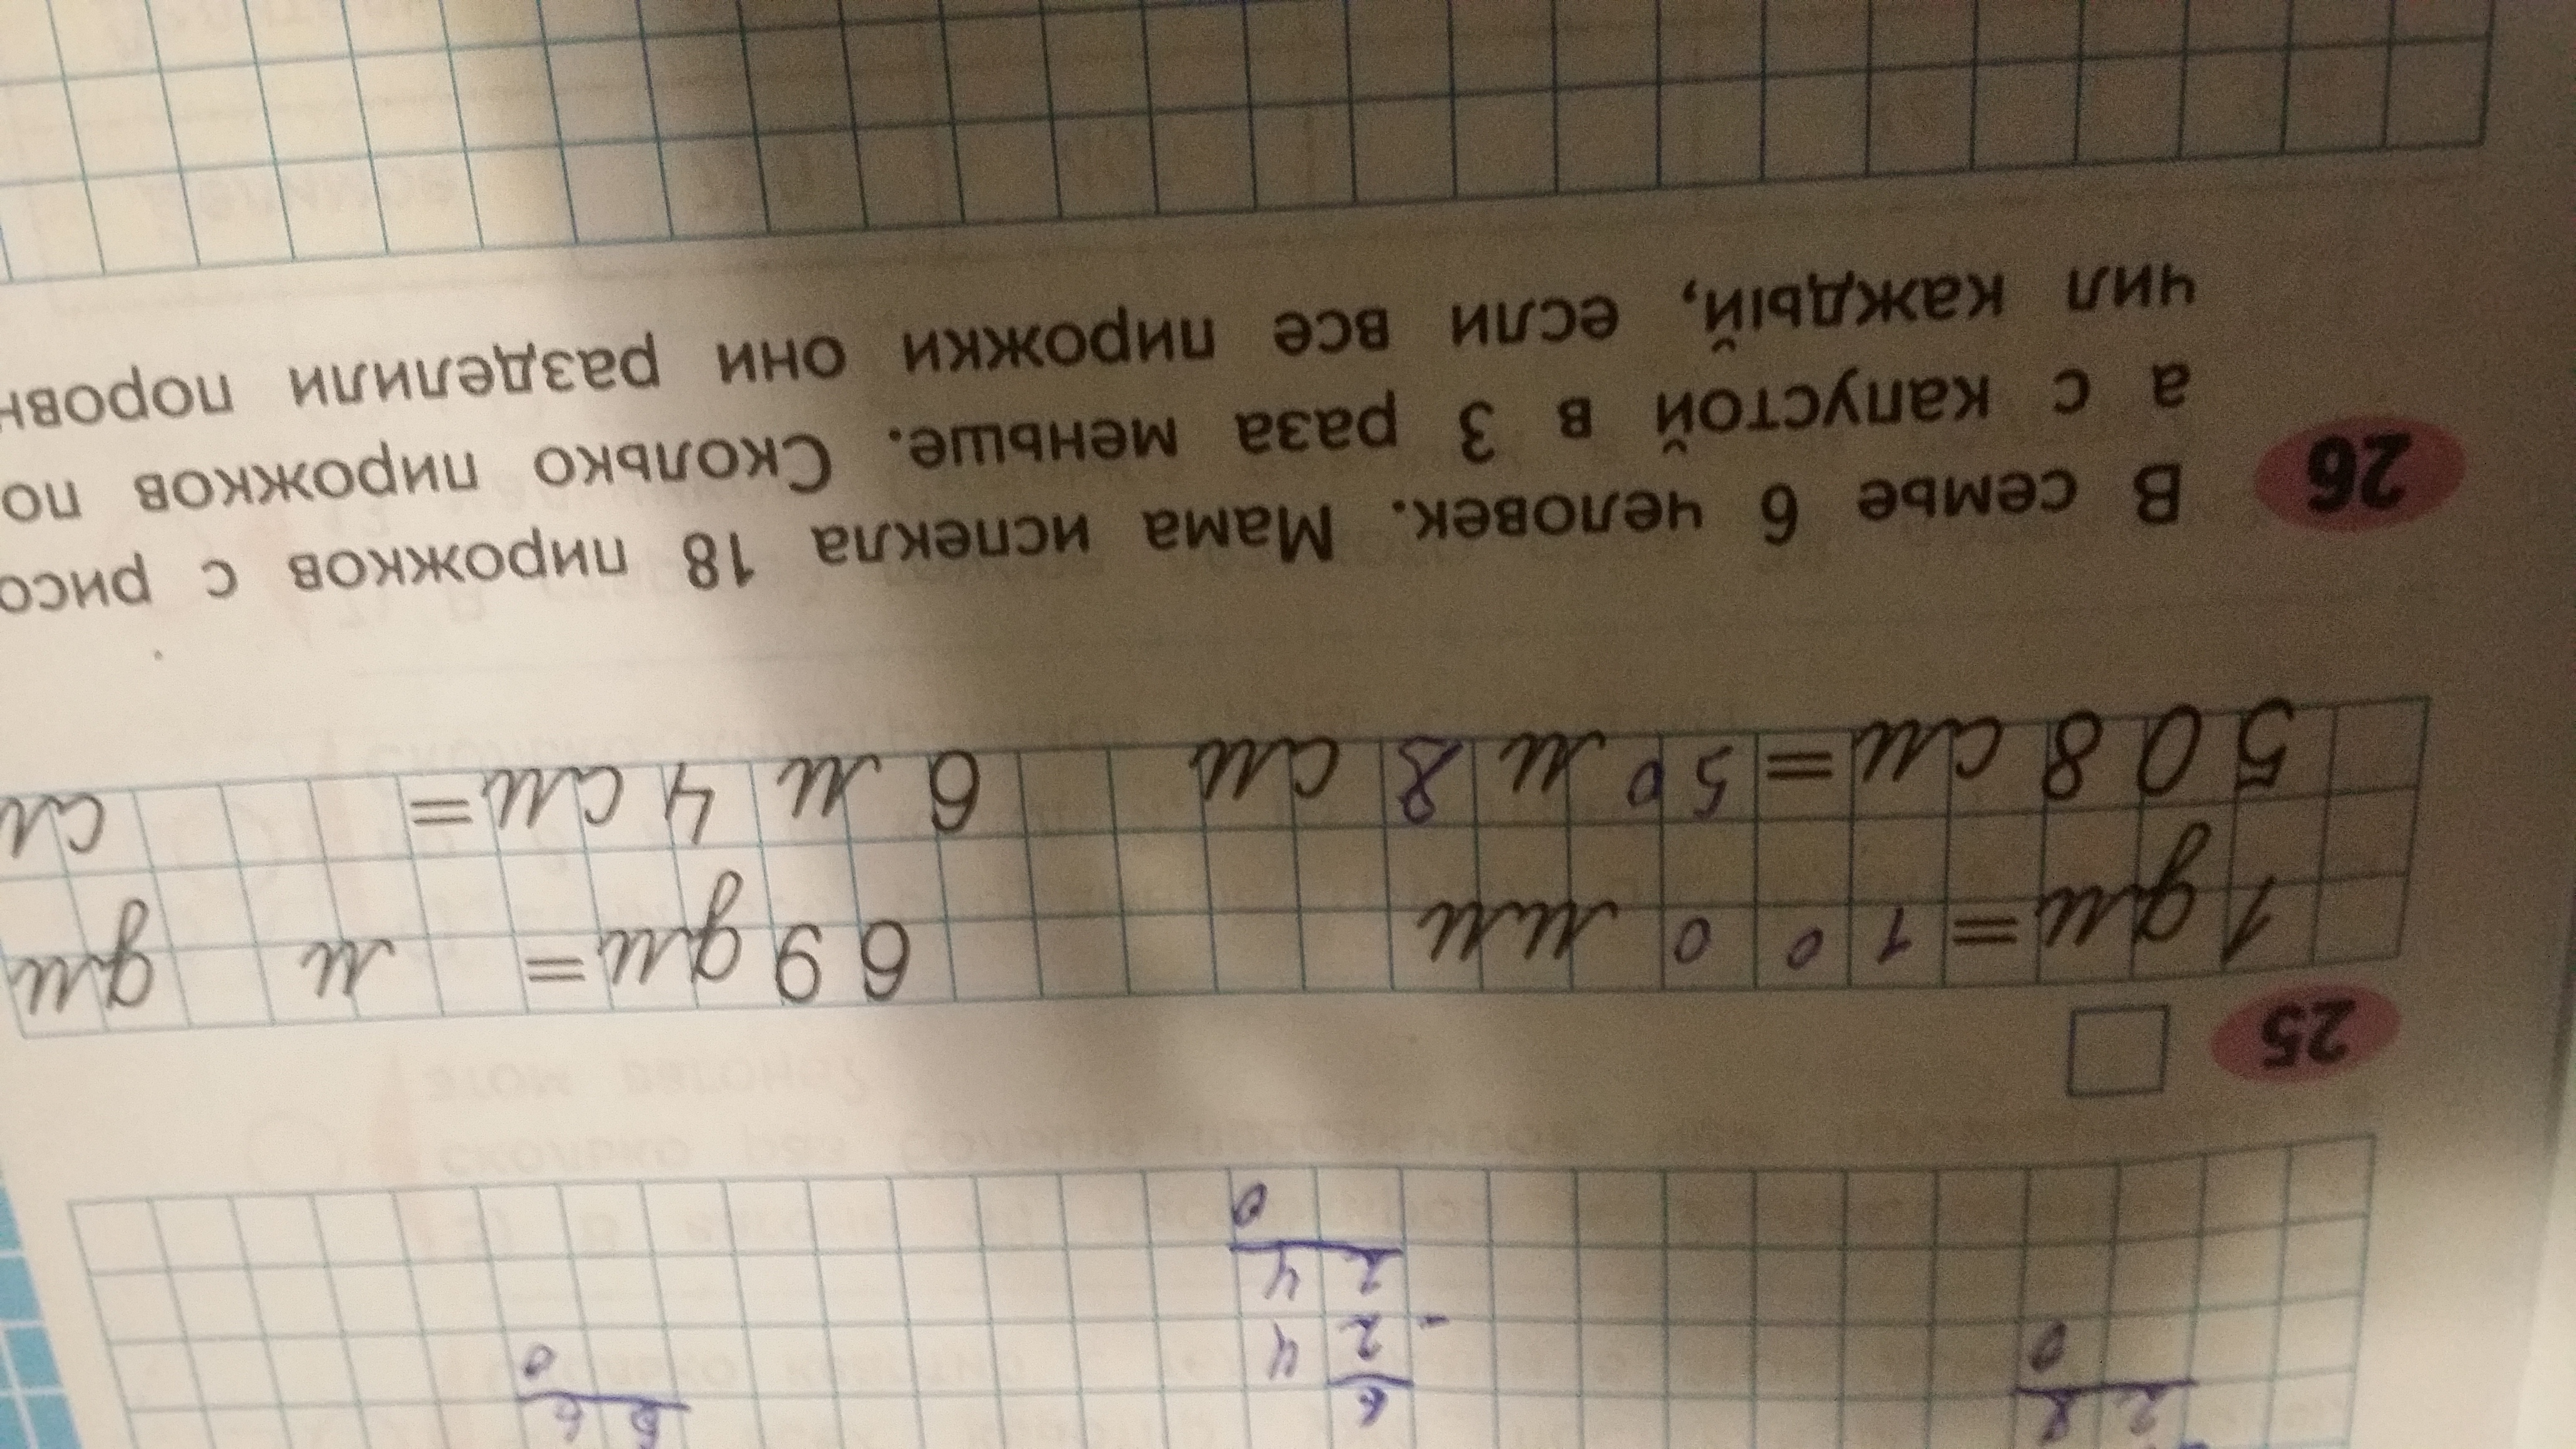 2 8
0
6
- 2 4
2 4
0
0
25
1 дм = 1 0 0 мм 69 дм = м дм
508 см = 5 0 м 8 см 6 м 4 см = см
26 В семье 6 человек. Мама испекла 18 пирожков с рисо
а с капустой в 3 раза меньше. Сколько пирожков по
чил каждый, если все пирожки они разделили поровн